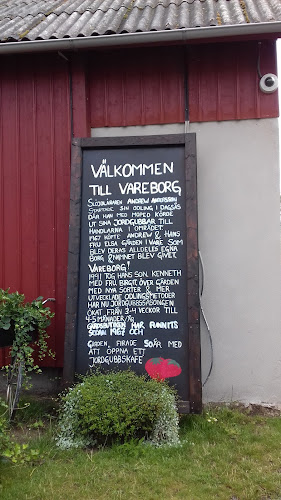 VÄLKOMMEN
TILL VAREBORG
SLÖJDLÄRAREN ANDREW
STARTADE SIN ODLING I DAGSÅS
DÄR HAN MED MOPED KÖRDE
UT SINA JORDGUBBAR TILL
HANDLARNA I OMRÅDET.
1967 KÖPTE ANDREW & HANS
FRU ELSA GÅRDEN I VARE SOM
BLEV DERAS ALLDELES EGNA
BORG & NAMNET BLEV GIVET
VAREBORG!
1991 TOG HANS SON KENNETH
MED FRU BIRGIT ÖVER GÅRDEN
MED NYA SORTER & MER
UTVECKLADE ODLINGSMETODER
HAR NU JORDGUBBSSÄSONGEN
ÖKAT FRÅN 3-4 VECKOR TILL
4-5 MÅNADER/ÅR
GÅRDSBUTIKEN HAR FUNNITS
SEDAN 1967 OCH
GÅRDEN FIRADE 50ÅR MED
ATT ÖPPNA ETT
JORDGUBBSKAFÉ